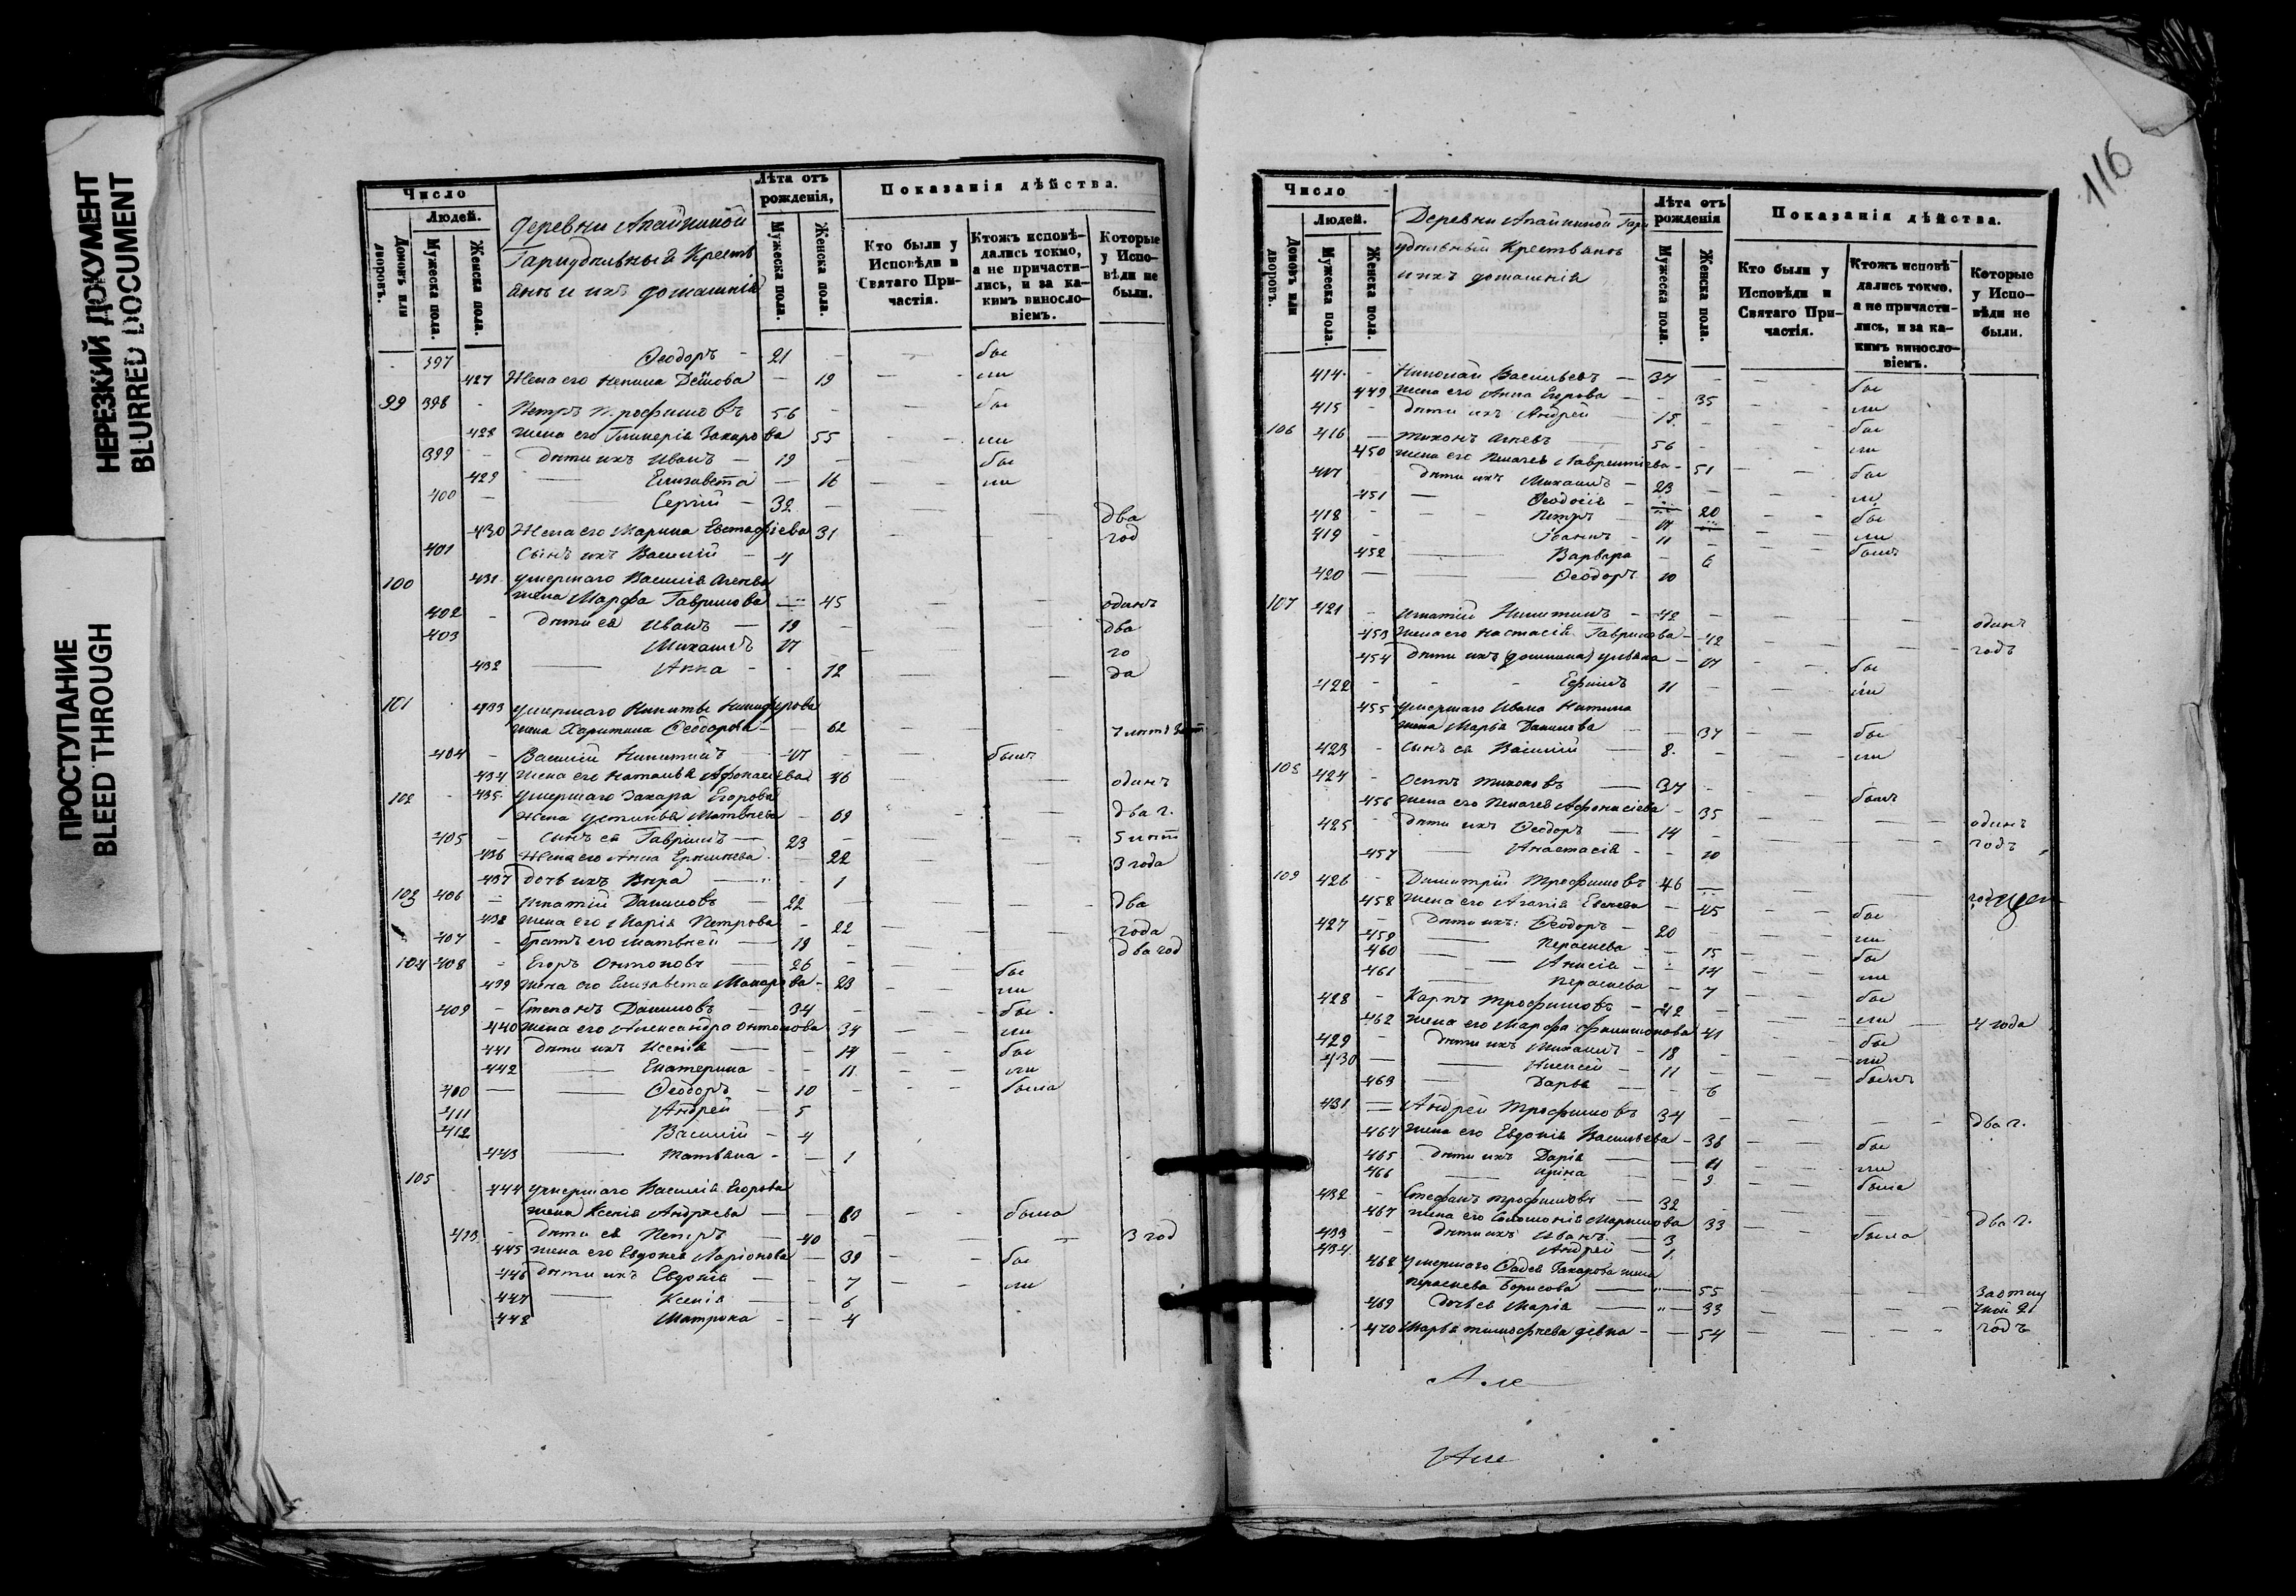 НЕРЕЗКИЙ ДОКУМЕНТ
BLURRED DOCUMENT
ПРОСТУПАНИЕ
BLEED THROUGH
Число
Людей.
Домовъ или дворовъ.
Мужеска пола.
Женска пола.
деревни Апайкиной
Гари удѣльный Кресть
янѣ и ихъ домашнія
Лѣта отъ рожденія,
Мужеска пола.
Женска пола.
Показанія дѣйства.
Кто были у Исповѣди и Святаго Причастія.
Ктожъ исповѣдались токмо, а не причастились, и за какимъ винословіемъ.
Которые у Исповѣди не были.
397 - Ѳеодоръ - 21 - бы
427 Жена его - 19 - ли
99 398 - Петръ Трофимовъ 56 - бы
428 жена его Гликерія Захарова 55 - ли
399 - дѣти ихъ Иванъ - 19 - бы
429 - Елизавета - 16 - ли
400 - Сергій - 32 - два
430 Жена его Марина Евстафіева 31 - год
401 Сынъ ихъ Василій - 4
100 431 умершаго Василія
жена Марфа Гаврилова - 45 - одинъ
402 - дѣти ея Иванъ - 19 - два
403 Михаилъ 17 - го
432 - Анна - 12 - да
101 433 умершаго Никиты Никифорова
жена Харитина Ѳеодорова - 62
404 - Василій Никитинъ - 47 - былъ
434 жена его Наталья Афонасіева 46 - одинъ
102 - 435 умершаго Захара Егорова
жена Устинья Матвѣева - 69 - два г.
405 - сынъ ея Гаврилъ - 23 - 5 лѣт
436 Жена его Анна - 22 - 3 года
437 дочь ихъ Вѣра - 1
103 406 - Игнатій Даниловъ - 22 - два
438 жена его Марія Петрова - 22 - года
407 - братъ его Матвѣй - 19 - два год
104 408 - Егоръ Онтоновъ - 26 - бы
439 жена его Елизавета Макарова - 23 - ли
409 - Степанъ Даниловъ - 34 - бы
440 жена его Александра Онтонова 34 - ли
441 дѣти ихъ Ксенія - 14 - бы
442 - Екатерина - 11 - ли
410 - Ѳеодоръ - 10 - была
411 Андрей - 5
412 Василій - 4
443 - Татьяна - 1
105
444 умершаго Василія Егорова
жена Ксенія Андреева - 63 - была
413 - дѣти ея Петръ - 40 - 3 год
445 жена его Евдокея Ларіонова - 39 - бы
446 дѣти ихъ Евдокія - 7 - ли
447 - Ксенія - 6
448 Матрона - 4
116
Число
Людей.
Домовъ или дворовъ.
Мужеска пола.
Женска пола.
Деревни Апайкиной Гари
удѣльный Крестьянъ
и ихъ домашнія
Лѣта отъ рожденія
Мужеска пола.
Женска пола.
Показанія дѣйства.
Кто были у Исповѣди и Святаго Причастія.
Ктожъ исповѣдались токмо, а не причастились, и за какимъ винословіемъ.
Которые у Исповѣди не были.
414 - Николай Васильевъ - 37 - бы
449 жена его Анна Егорова - 35 - ли
415 - дѣти ихъ Андрей - 15 - бы
106 416 - Тихонъ - 56 - ли
450 жена его Пелагея Лаврентіева - 51 - бы
417 дѣти ихъ Михаилъ - 23 - ли
451 - Ѳеодосія - 20 - бы
418 - Петръ - 17 - ли
419 - Іоаннъ - 11 - былъ
452 - Варвара - 6
420 - Ѳеодоръ 10
107 421 - Игнатій Никитинъ - 42 - одинъ
453 жена его Настасія Гаврилова - 42 - годъ
454 дѣти ихъ Ульяна - 17 - бы
422 - Ефимъ 11 - ли
455 умершаго Ивана Никитина
жена Марья Данилова - 37 - бы
423 - сынъ ея Василій - 8 - ли
108 424 - Осипъ Тихоновъ - 37 - былъ
456 жена его Пелагея Афонасіева - 35 - одинъ
425 - дѣти ихъ Ѳеодоръ - 14 - годъ
457 - Анастасія - 10
109 426 - Димитрій Трофимовъ 46
458 жена его Агапія - 45 - бы
427 - дѣти ихъ: Ѳеодоръ - 20 - ли
459 - Пераскева - 15 - бы
460 - Анисія - 14 - ли
461 - Пераскева - 7 - бы
428 - Карпъ Трофимовъ - 42 - ли - 4 года
462 жена его Марфа Филимонова 41 - бы
429 - дѣти ихъ Михаилъ - 18 - ли
430 - Алексей - 11 - былъ
463 - Дарья - 6
431 - Андрей Трофимовъ 34 - два г.
464 жена его Евдокія Васильева - 36 - бы
465 дѣти ихъ Дарія - 11 - ли
466 - Ирина - 9 - была
432 - Стефанъ Трофимовъ - 32 - два г.
467 жена его Соломонія 33 - была
433 - дѣти ихъ Иванъ - 3
434 Андрей - 1
468 умершаго Фадея Захарова жена
Пераскева Борисова - 55
469 дочь ея Марія - 33
470 Марья Тимофеева девка - 54 - годъ